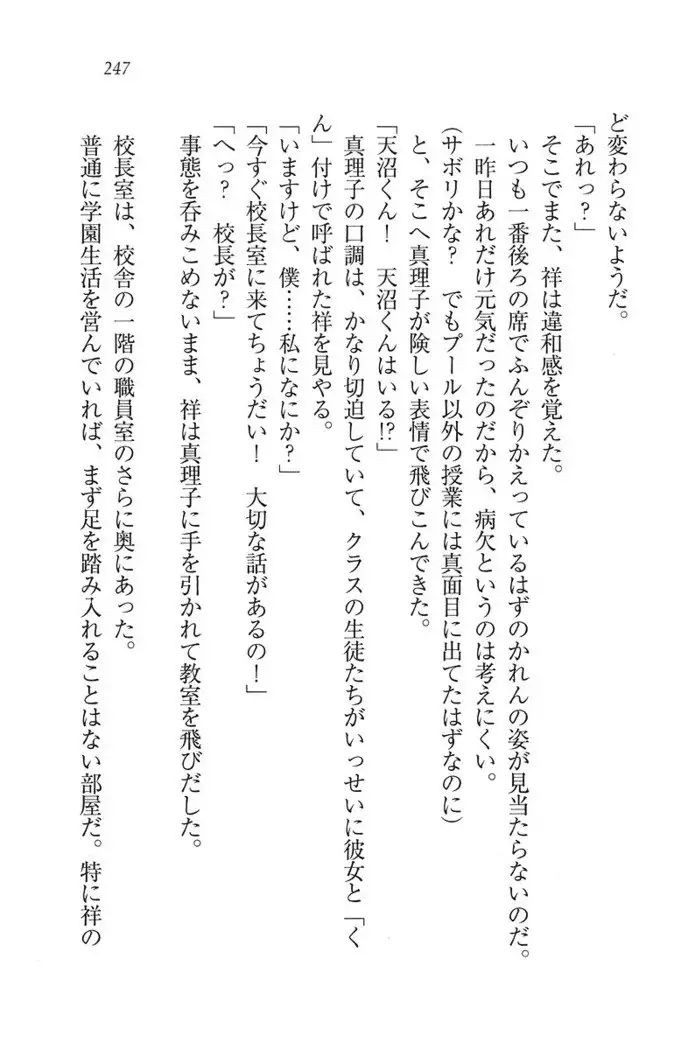 247
ど変わらないようだ。
「あれっ？」
そこでまた、祥は違和感を覚えた。
いつも一番後ろの席でふんぞりかえっているはずのかれんの姿が見当たらないのだ。
一昨日あれだけ元気だったのだから、病欠というのは考えにくい。
(サボリかな？　でもプール以外の授業には真面目に出てたはずなのに)
と、そこへ真理子が険しい表情で飛びこんできた。
「天沼くん！　天沼くんはいる!?」
真理子の口調は、かなり切迫していて、クラスの生徒たちがいっせいに彼女と「く
ん」付けで呼ばれた祥を見やる。
「いますけど、僕……私になにか？」
「今すぐ校長室に来てちょうだい！　大切な話があるの！」
「へっ？　校長が？」
事態を呑みこめないまま、祥は真理子に手を引かれて教室を飛びだした。
校長室は、校舎の一階の職員室のさらに奥にあった。
普通に学園生活を営んでいれば、まず足を踏み入れることはない部屋だ。特に祥の